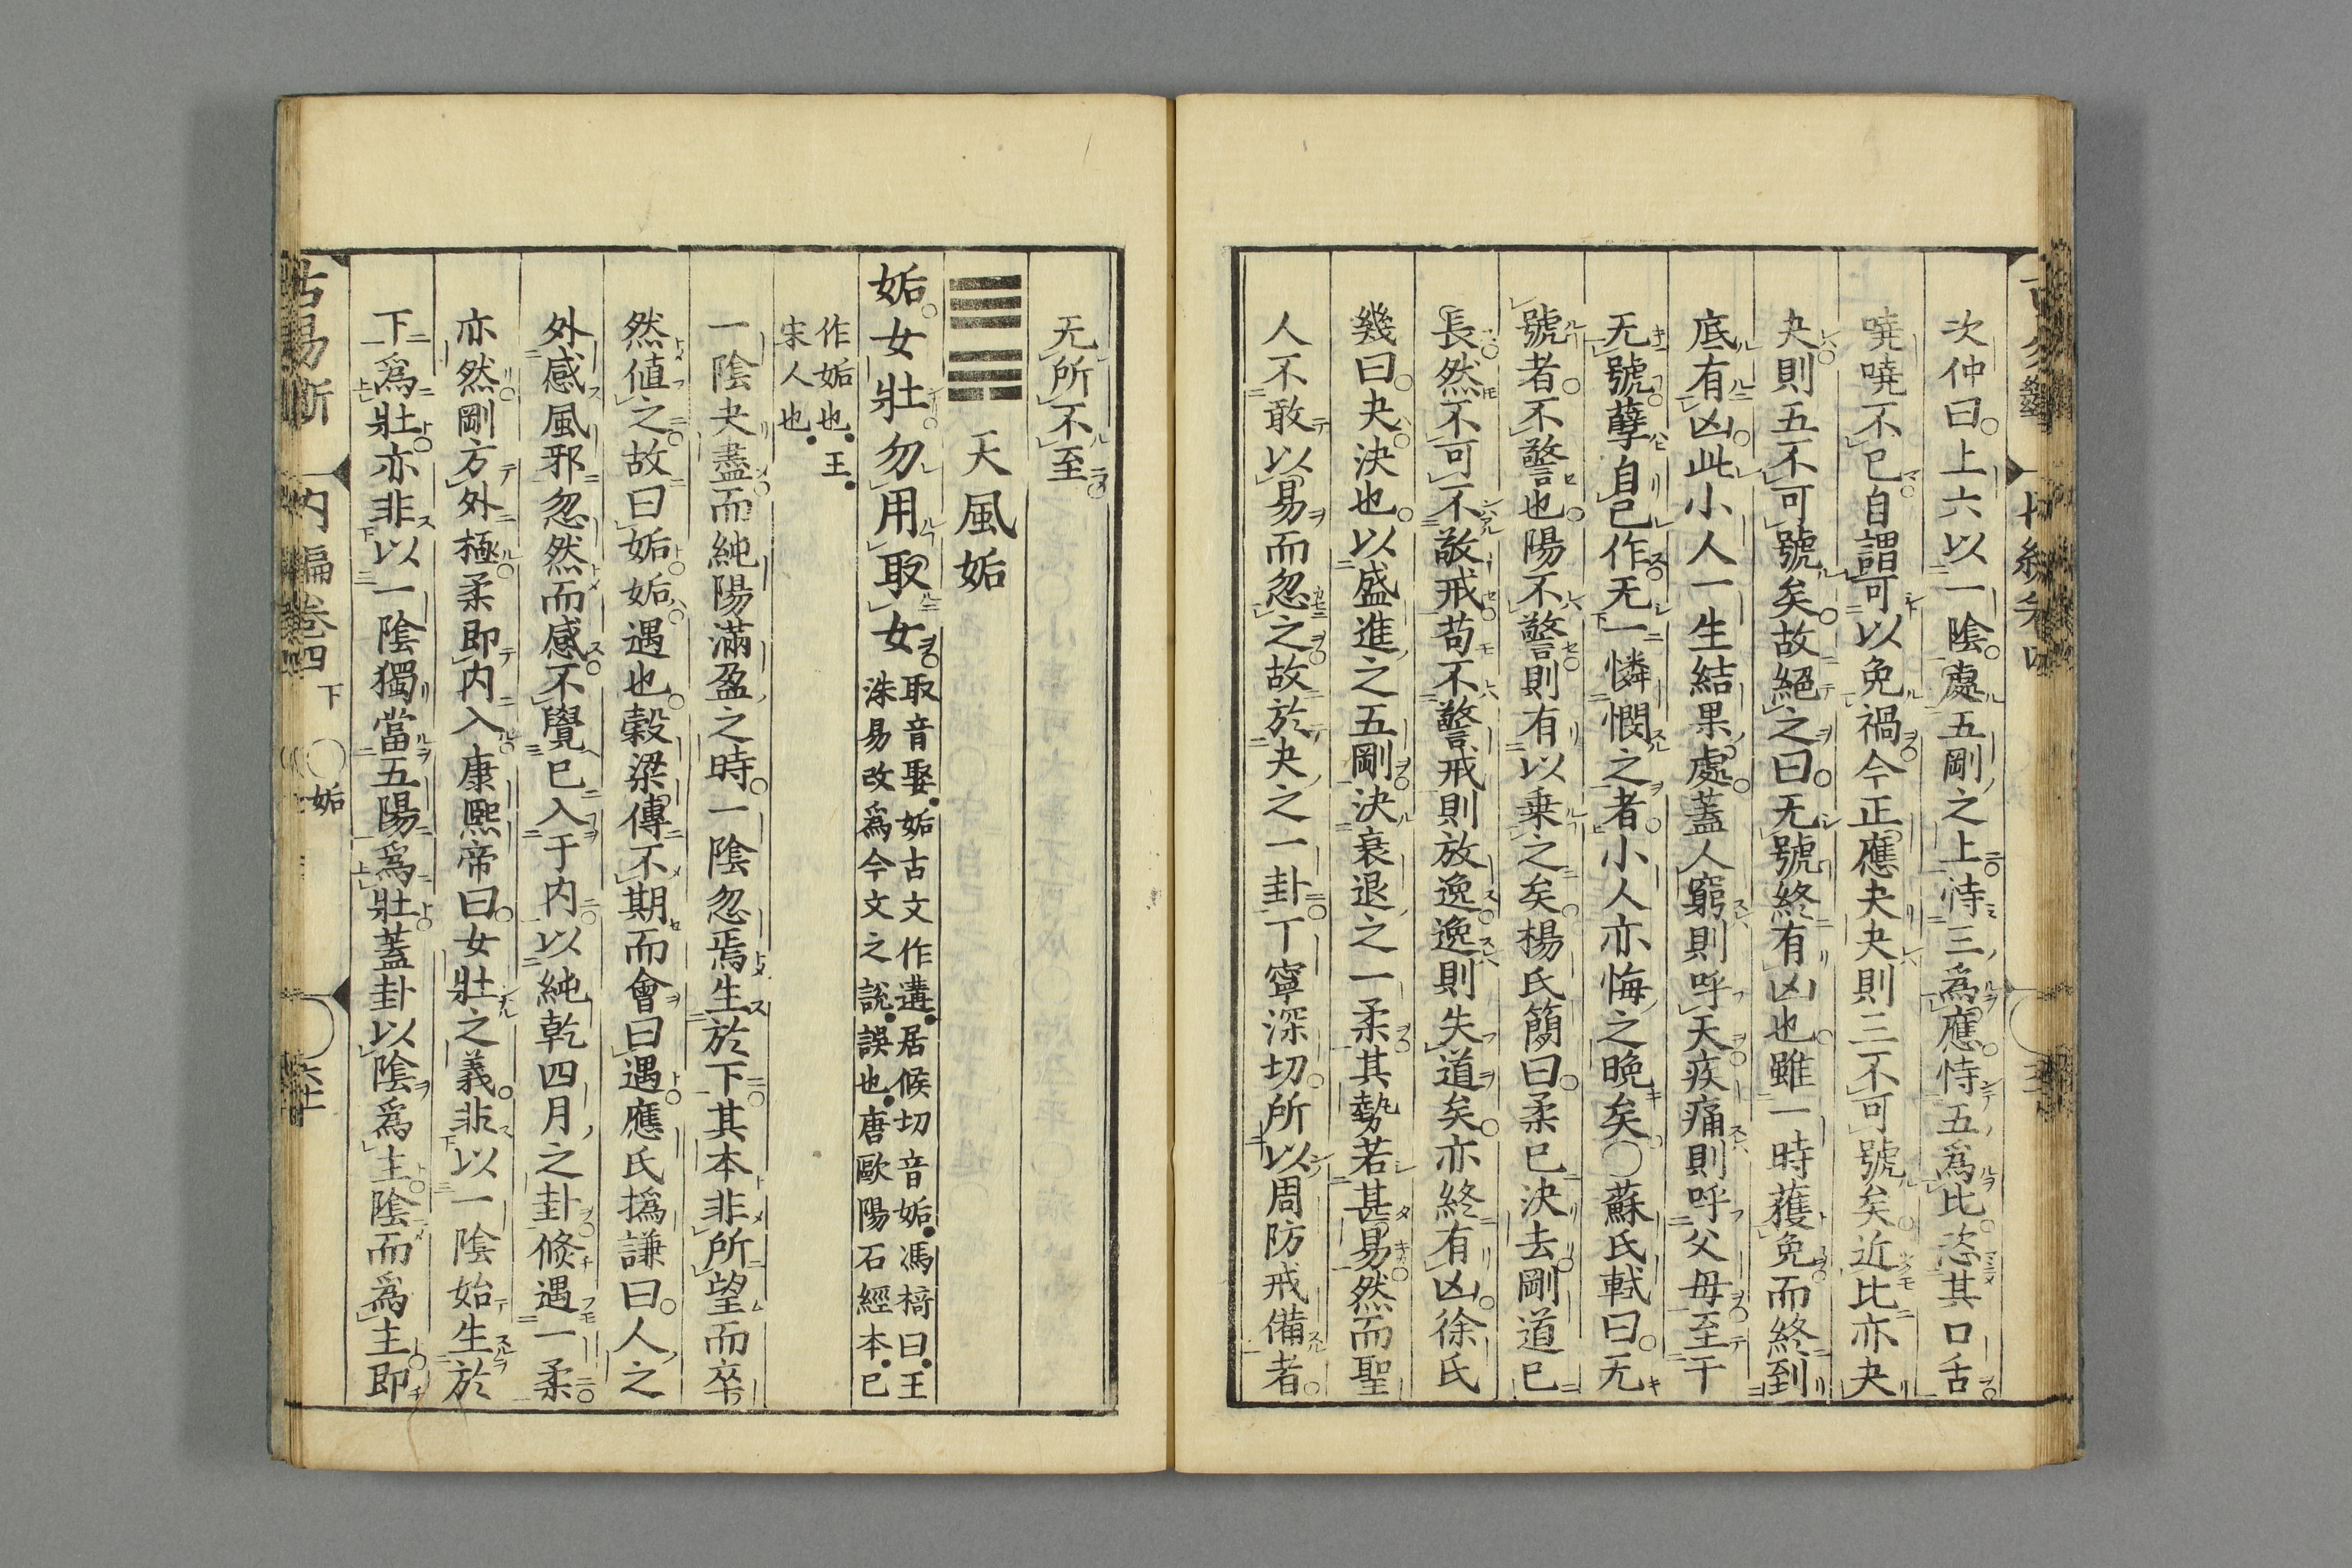 次仲曰上六以一陰處五剛之上恃三為應恃五為比恣其口舌
嘵嘵不已自謂可以免禍今正應夬夬則三不可號矣近比亦夬
夬則五不可號矣故絕之曰无號終有凶也雖一時獲免而終到
底有凶此小人一生結果處蓋人窮則呼天疾痛則呼父母至于
无號孽自己作无一憐憫之者小人亦悔之晚矣○蘇氏軾曰无
號者不警也陽不警則有以乗之矣楊氏簡曰柔已決去剛道已
長然不可不敬戒苟不警戒則放逸逸則失道矣亦終有凶徐氏
幾曰夬決也以盛進之五剛決衰退之一柔其勢若甚易然而聖
人不敢以易而忽之故於夬之一卦丁寧深切所以周防戒備者
无所不至
天風姤
姤女壯勿用取女
取音娶姤古文作遘居候切音姤馮椅曰王
洙易改為今文之說誤也唐歐陽石經本已
作姤也王
宋人也
一陰夬盡而純陽滿盈之時一陰忽焉生於下其本非所望而卒
然値之故曰姤姤遇也穀梁傳不期而會曰遇應氏撝謙曰人之
外感風邪忽然而感不覺已入于内以純乾四月之卦倐遇一柔
亦然剛方外極柔即内入康熙帝曰女壯之義非以一陰始生於
下為壯亦非以一陰獨當五陽為壯蓋卦以陰為主陰而為主即
古易斷 内編卷四 下 ○姤